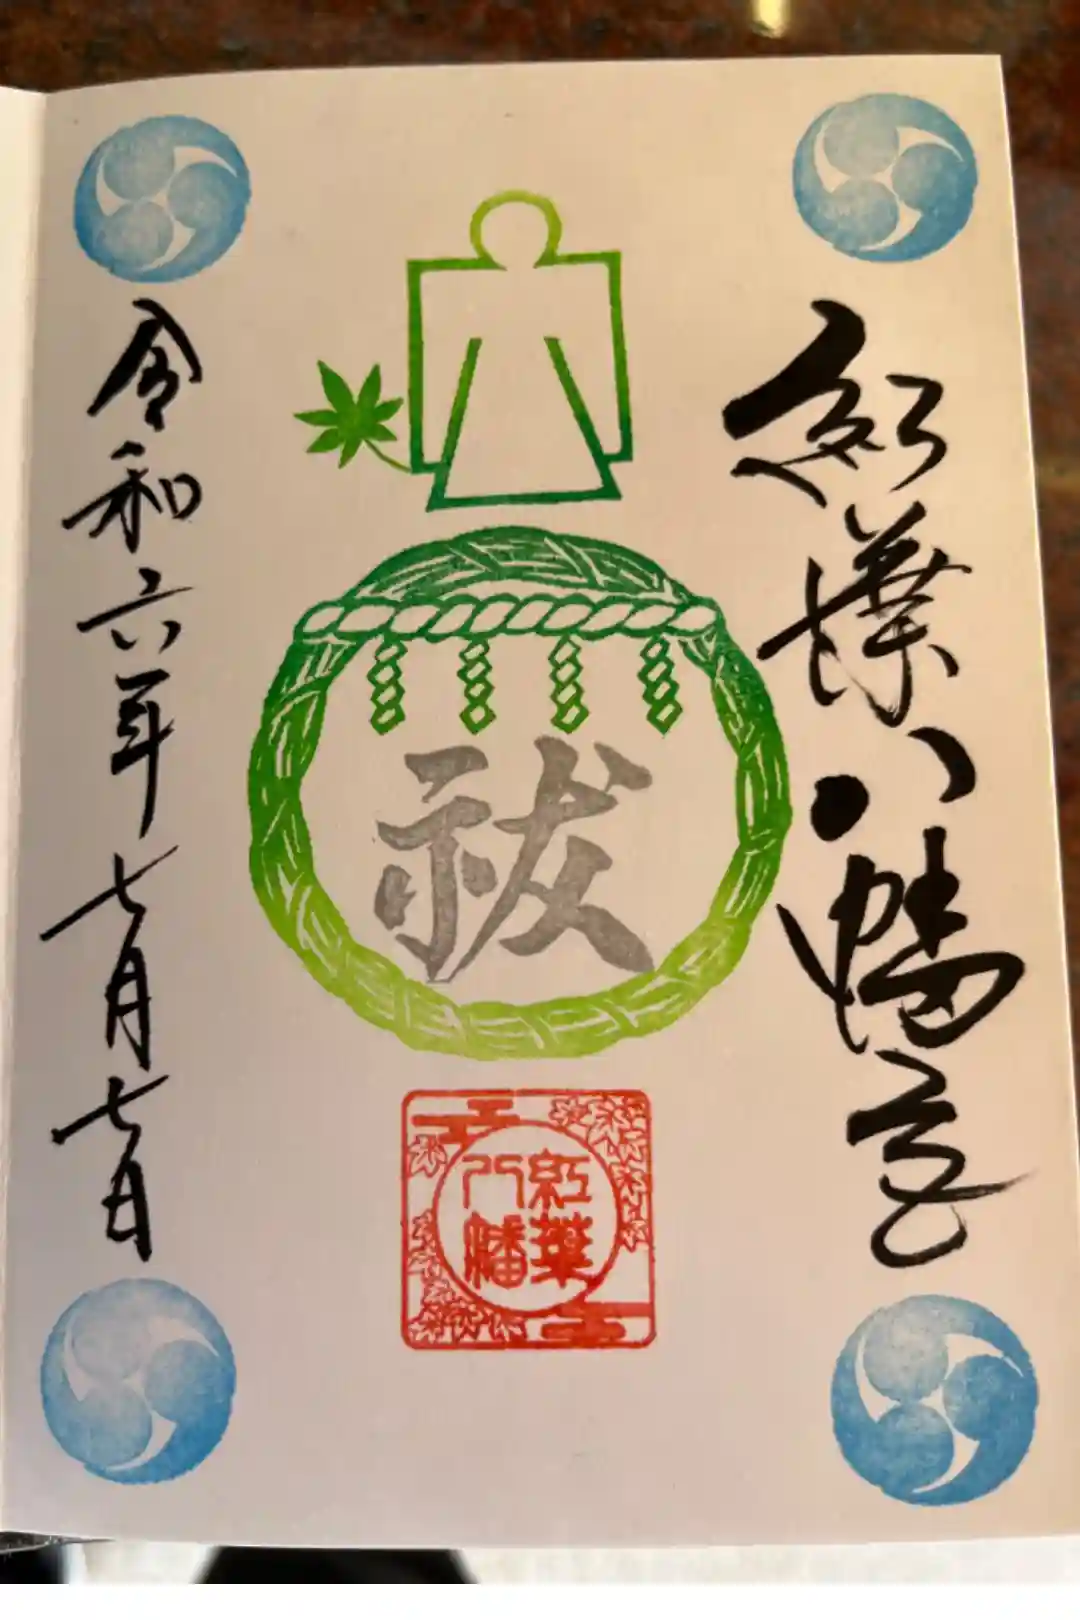 紅葉八幡宮
祓
紅葉
八幡
令和六年七月七日